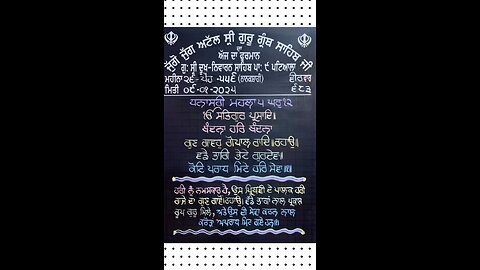 ਜੁੱਗੋ ਜੁੱਗ ਅਟੱਲ ਸ੍ਰੀ ਗੁਰੂ ਗ੍ਰੰਥ ਸਾਹਿਬ ਜੀ
ਦਾ
ਅੱਜ ਦਾ ਫੁਰਮਾਨ
ਗੁ: ਸ੍ਰੀ ਦੂਖ-ਨਿਵਾਰਨ ਸਾਹਿਬ ਪਾ: ੯ ਪਟਿਆਲਾ
ਮਹੀਨਾ ੨੬ - ਪੋਹ - ੫੫੬ (ਨਾਨਕਸ਼ਾਹੀ) ਵੀਰਵਾਰ
ਮਿਤੀ ੦੯-੦੧-੨੦੨੫ ੬੮੩
ਧਨਾਸਰੀ ਮਹਲਾ ੫ ਘਰੁ ੧੨
ੴ ਸਤਿਗੁਰ ਪ੍ਰਸਾਦਿ॥
ਬੰਦਨਾ ਹਰਿ ਬੰਦਨਾ
ਗੁਣ ਗਾਵਹੁ ਗੋਪਾਲ ਰਾਇ॥ਰਹਾਉ॥
ਵਡੈ ਭਾਗਿ ਭੇਟੇ ਗੁਰਦੇਵਾ॥
ਕੋਟਿ ਪਰਾਧ ਮਿਟੇ ਹਰਿ ਸੇਵਾ॥੧॥
ਹਰੀ ਨੂੰ ਨਮਸਕਾਰ ਹੈ, ਉਸ ਪ੍ਰਿਥਵੀ ਦੇ ਪਾਲਕ ਹਰੀ
ਰਾਜੇ ਦਾ ਗੁਣ ਗਾਵੋ॥ਰਹਾਉ॥ ਵੱਡੇ ਭਾਗਾਂ ਨਾਲ ਪ੍ਰਕਾਸ਼
ਰੂਪ ਗੁਰੂ ਮਿਲੇ, ਅਤੇ ਉਸ ਦੀ ਸੇਵਾ ਕਰਨ ਨਾਲ
ਕਰੋੜਾਂ ਅਪਰਾਧ ਮਿਟ ਗਏ ਹਨ॥੧॥